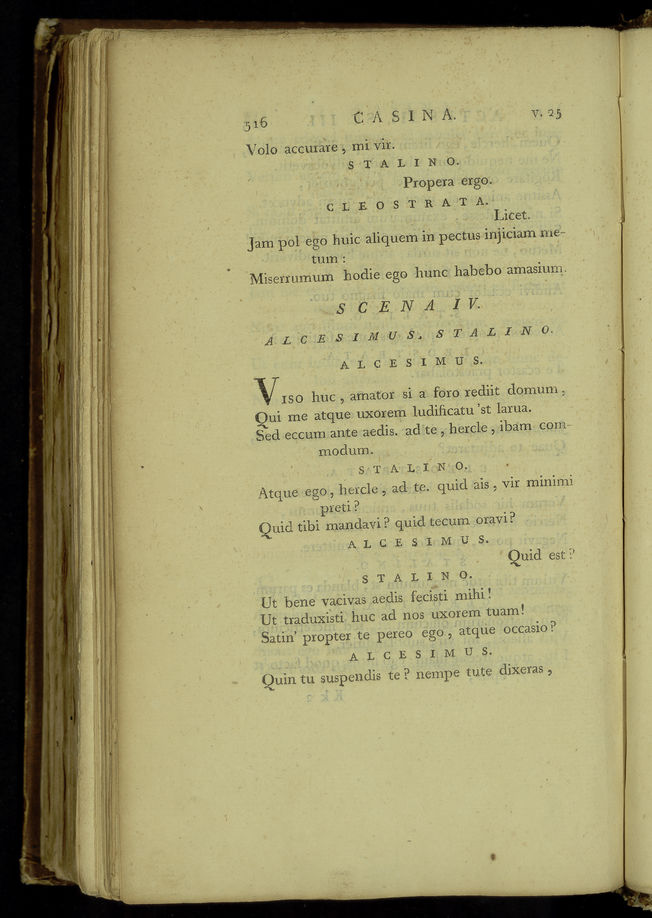 516 CASINA. v. 25
Volo accurare, mi vir.
STALINO.
Propera ergo.
CLEOSTRATA.
Licet.
Jam pol ego huic aliquem in pectus injiciam me-
tum:
Miserrumum hodie ego hunc habebo amasium.
SCENA IV.
ALCESIMUS. STALINO.
ALCESIMUS.
VISO huc, amator si a foro rediit domum,
Qui me atque uxorem ludificatu 'st larua.
Sed eccum ante aedis. ad te, hercle, ibam com-
modum.
STALINO.
Atque ego, hercle, ad te. quid ais, vir minimi
preti?
Quid tibi mandavi? quid tecum oravi?
ALCESIMUS.
Quid est?
STALINO.
Ut bene vacivas aedis fecisti mihi!
Ut traduxisti huc ad nos uxorem tuam!
Satin' propter te pereo ego, atque occasio?
ALCESIMUS.
Quin tu suspendis te? nempe tute dixeras,